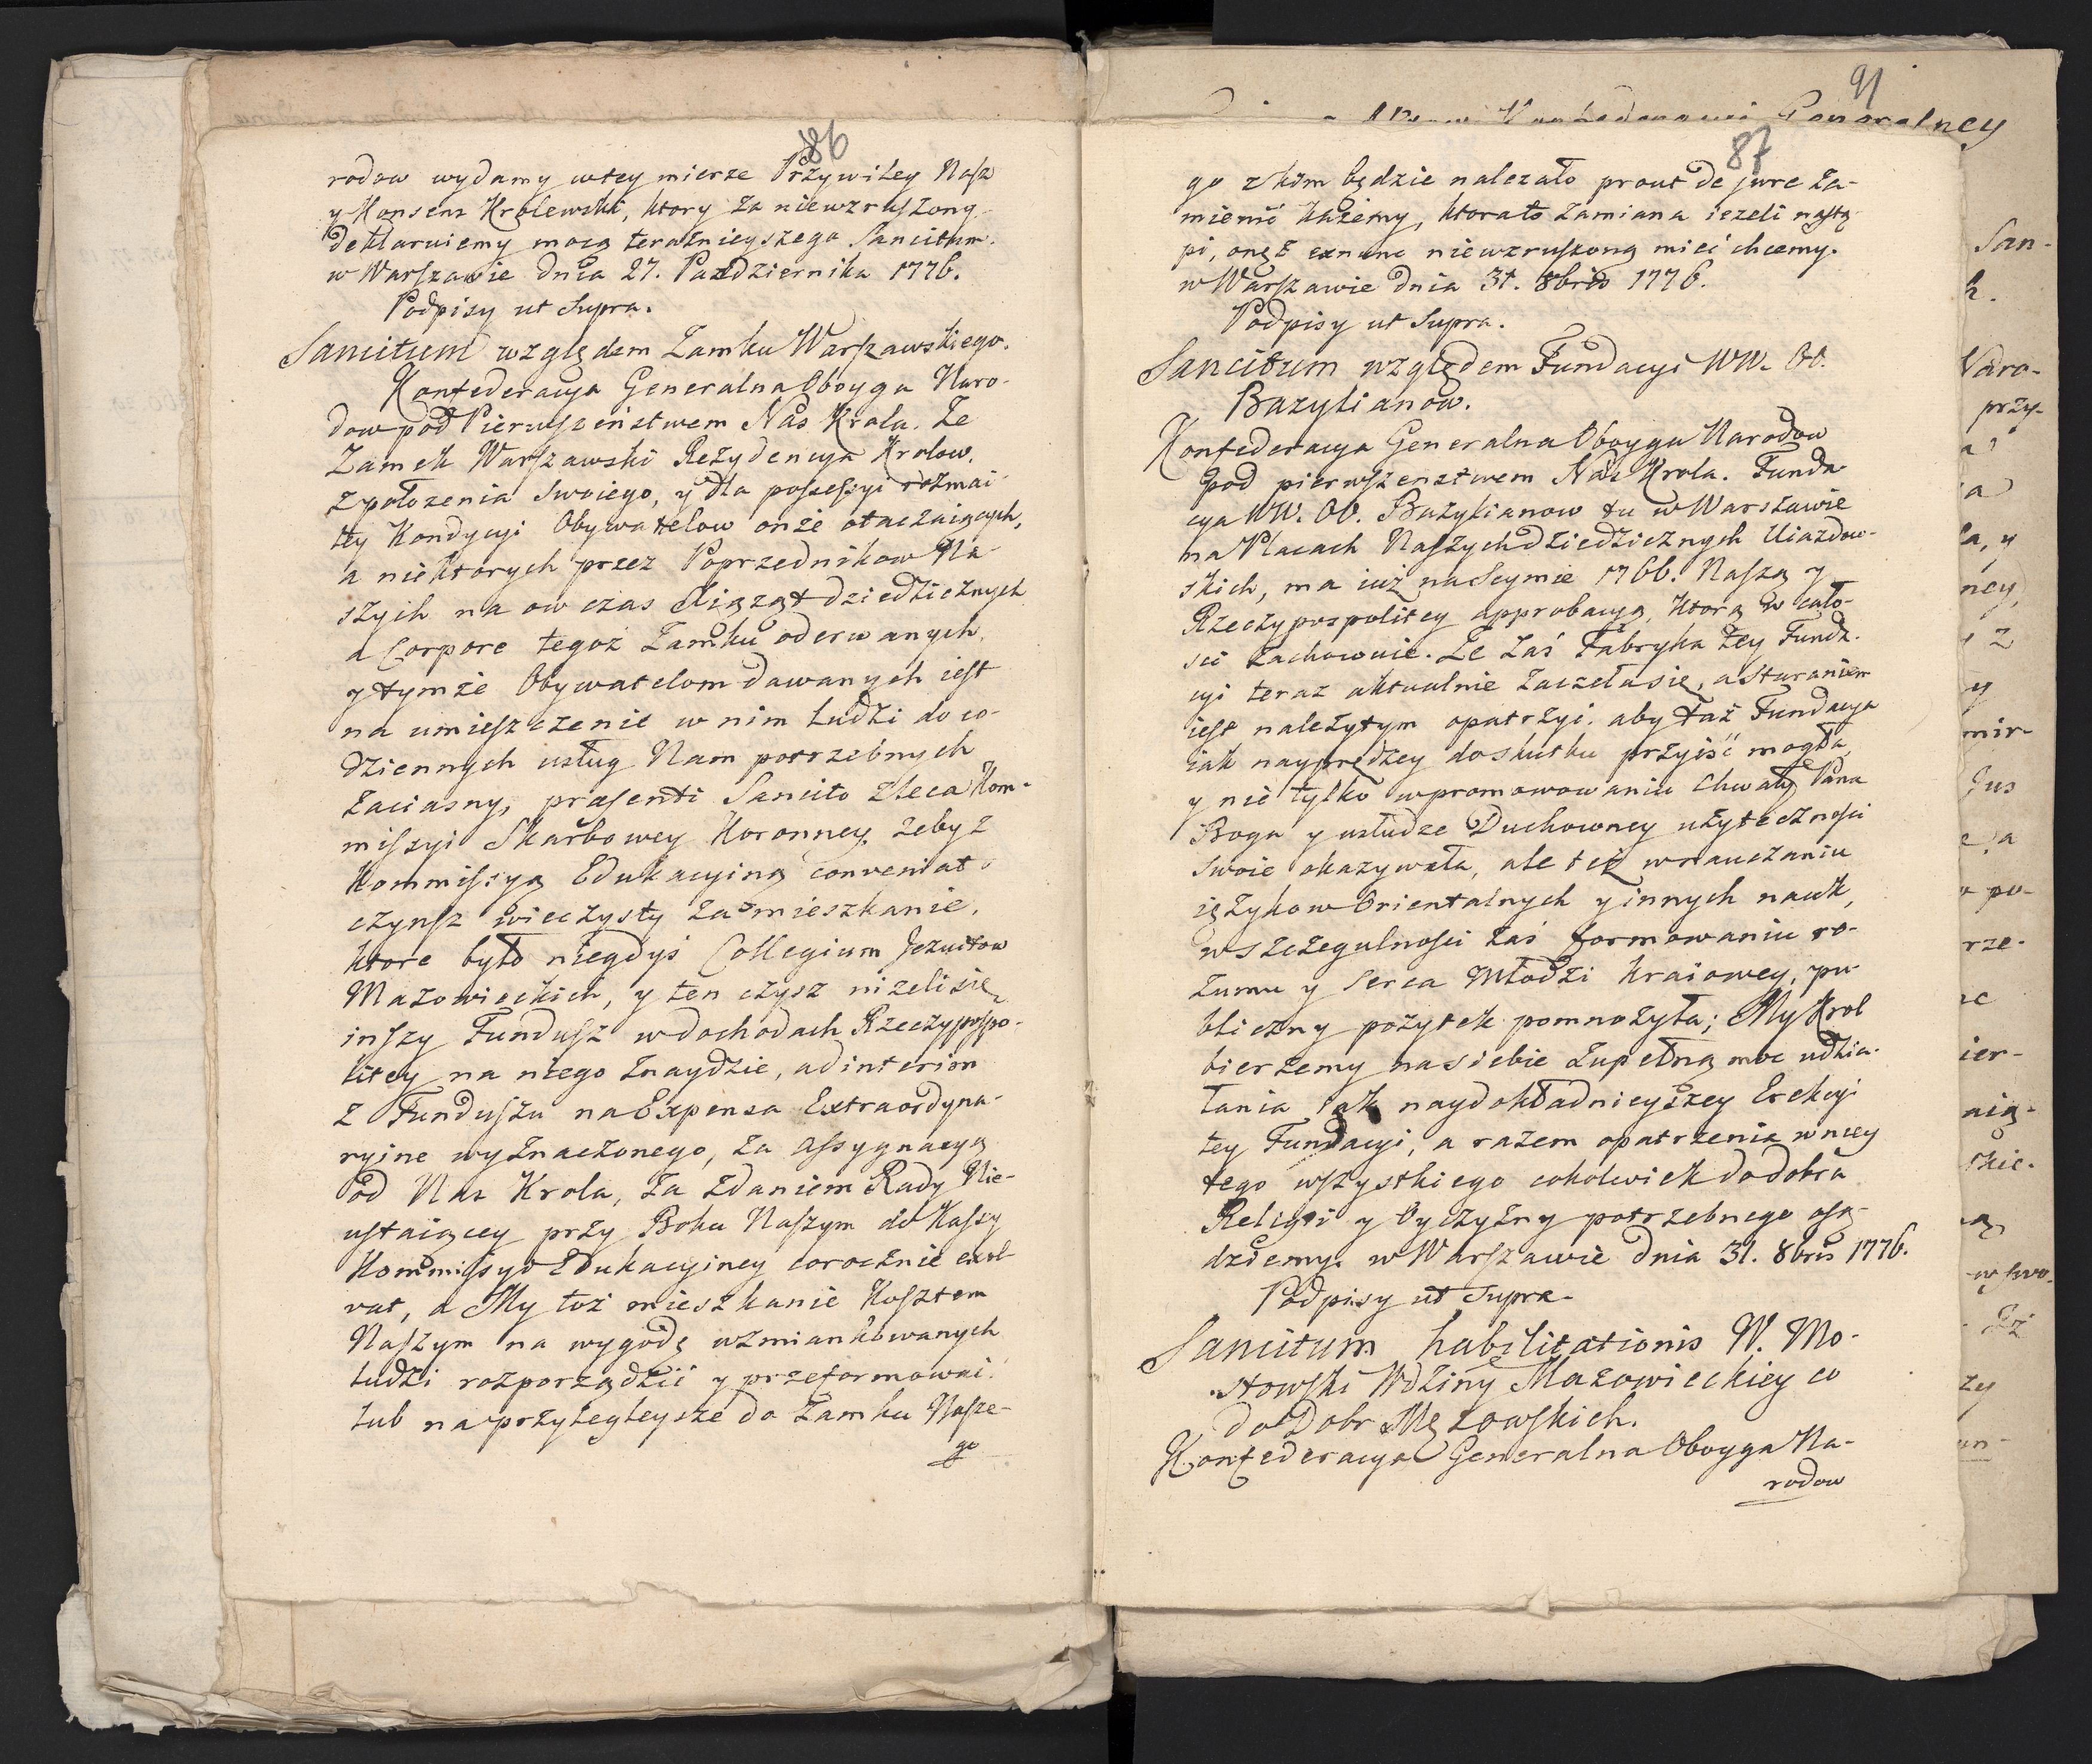 86
rodow wydamy wtey mierze Przywiley Nasz
y Konsens Krolewski, ktory za niewzruszony
deklaruiemy mocą teraznieyszego Sancitum.
w Warszawie dnia 27. Pazdziernika 1776.
Podpisy ut Supra.
Sancitum względem Zamku Warszawskiego.
Konfederacya Generalna Oboyga Naro-
dow pod Pierwszeństwem Nas Krola. Ze
Zamek Warszawski Rezydencya Krolow,
z położenia swoiego, y dla possessyi rozmai-
tey Kondycyi Obywatelow onże otaczaiących,
a niektorych przez Poprzednikow Na-
szych na ow czas Xiąząt dziedzicznych
a Corpore tegoż Zamku oderwanych,
y tymże Obywatelom dawanych iest
na umieszczenie w nim Ludzi do co-
dziennych usług Nam potrzebnych
zaciasny, præsenti Sancito zleca Kom-
missyi Skarbowey Koronney, żeby z
Kommissyą Edukacyiną conveniat o
czynsz wieczysty za mieszkanie,
ktore było niegdyś Collegium Jezuitow
Mazowieckich, y ten czysz nizeli się
inszy Fundusz w dochodach Rzeczypospo-
litey na niego znaydzie, ad interim
z Funduszu na Expensa Extraordyna-
ryine wyznaczonego, za assygnacyą
od Nas Krola, za zdaniem Rady Nie-
ustaiącey przy Boku Naszym do Kassy
Kommissyi Edukacyiney corocznie exol-
vat, a My toż mieszkanie Kosztem
Naszym na wygodę wzmiankowanych
ludzi rozporządzić y przeformować
lub na przylegleysze do Zamku Nasze-
go
91
Konfederacyi Generalney
87
go z kim będzie nalezało prout de jure za-
mienić każemy, ktorato zamiana iezeli nastą-
pi, onęż exnunc niewzruszoną mieć chcemy.
w Warszawie dnia 31. 8bris 1776.
Podpisy ut Supra.
Sancitum względem Fundacyi WW. OO.
Bazylianow.
Konfederacya Generalna Oboyga Narodow
pod pierwszenstwem Nas Krola. Funda-
cya WW. OO. Bazylianow tu w Warszawie
na Placach Naszych dziedzicznych Uiazdow-
skich, ma iuż na Seymie 1766. Naszą y
Rzeczypospolitey approbacyą, ktorą w cało-
sci zachowuie. Ze zaś Fabryka tey Funda-
cyi teraz aktualnie zaczełasię, a staraniem
iest należytym opatrzyć, aby taż Fundacya
iak nayprędzey do skutku przyiść mogła,
y nie tylko wpromowowaniu Chwały Pana
Boga y usłudze Duchowney użyteczności
swoie okazywała, ale też w nauczaniu
ięzykow Orientalnych y innych nauk,
w szczegulności zaś formowaniu ro-
zumu y serca Młodzi kraiowey, pu-
bliczny pożytek pomnożyła; My Krol
bierzemy na siebie zupełną moc udzia-
łania iak naydokładnieyszey Erekcyi
tey Fundacyi, a razem opatrzenia w niey
tego wszystkiego cokolwiek do dobra
Religii y Oyczyzny potrzebnego osą-
dziemy. w Warszawie dnia 31. 8bris 1776.
Podpisy ut Supra.
Sancitum habilitationis W. Mo-
stowski Wdziny Mazowieckiey co
do Dobr Męzowskich.
Konfederacya Generalna Oboyga Na-
rodow